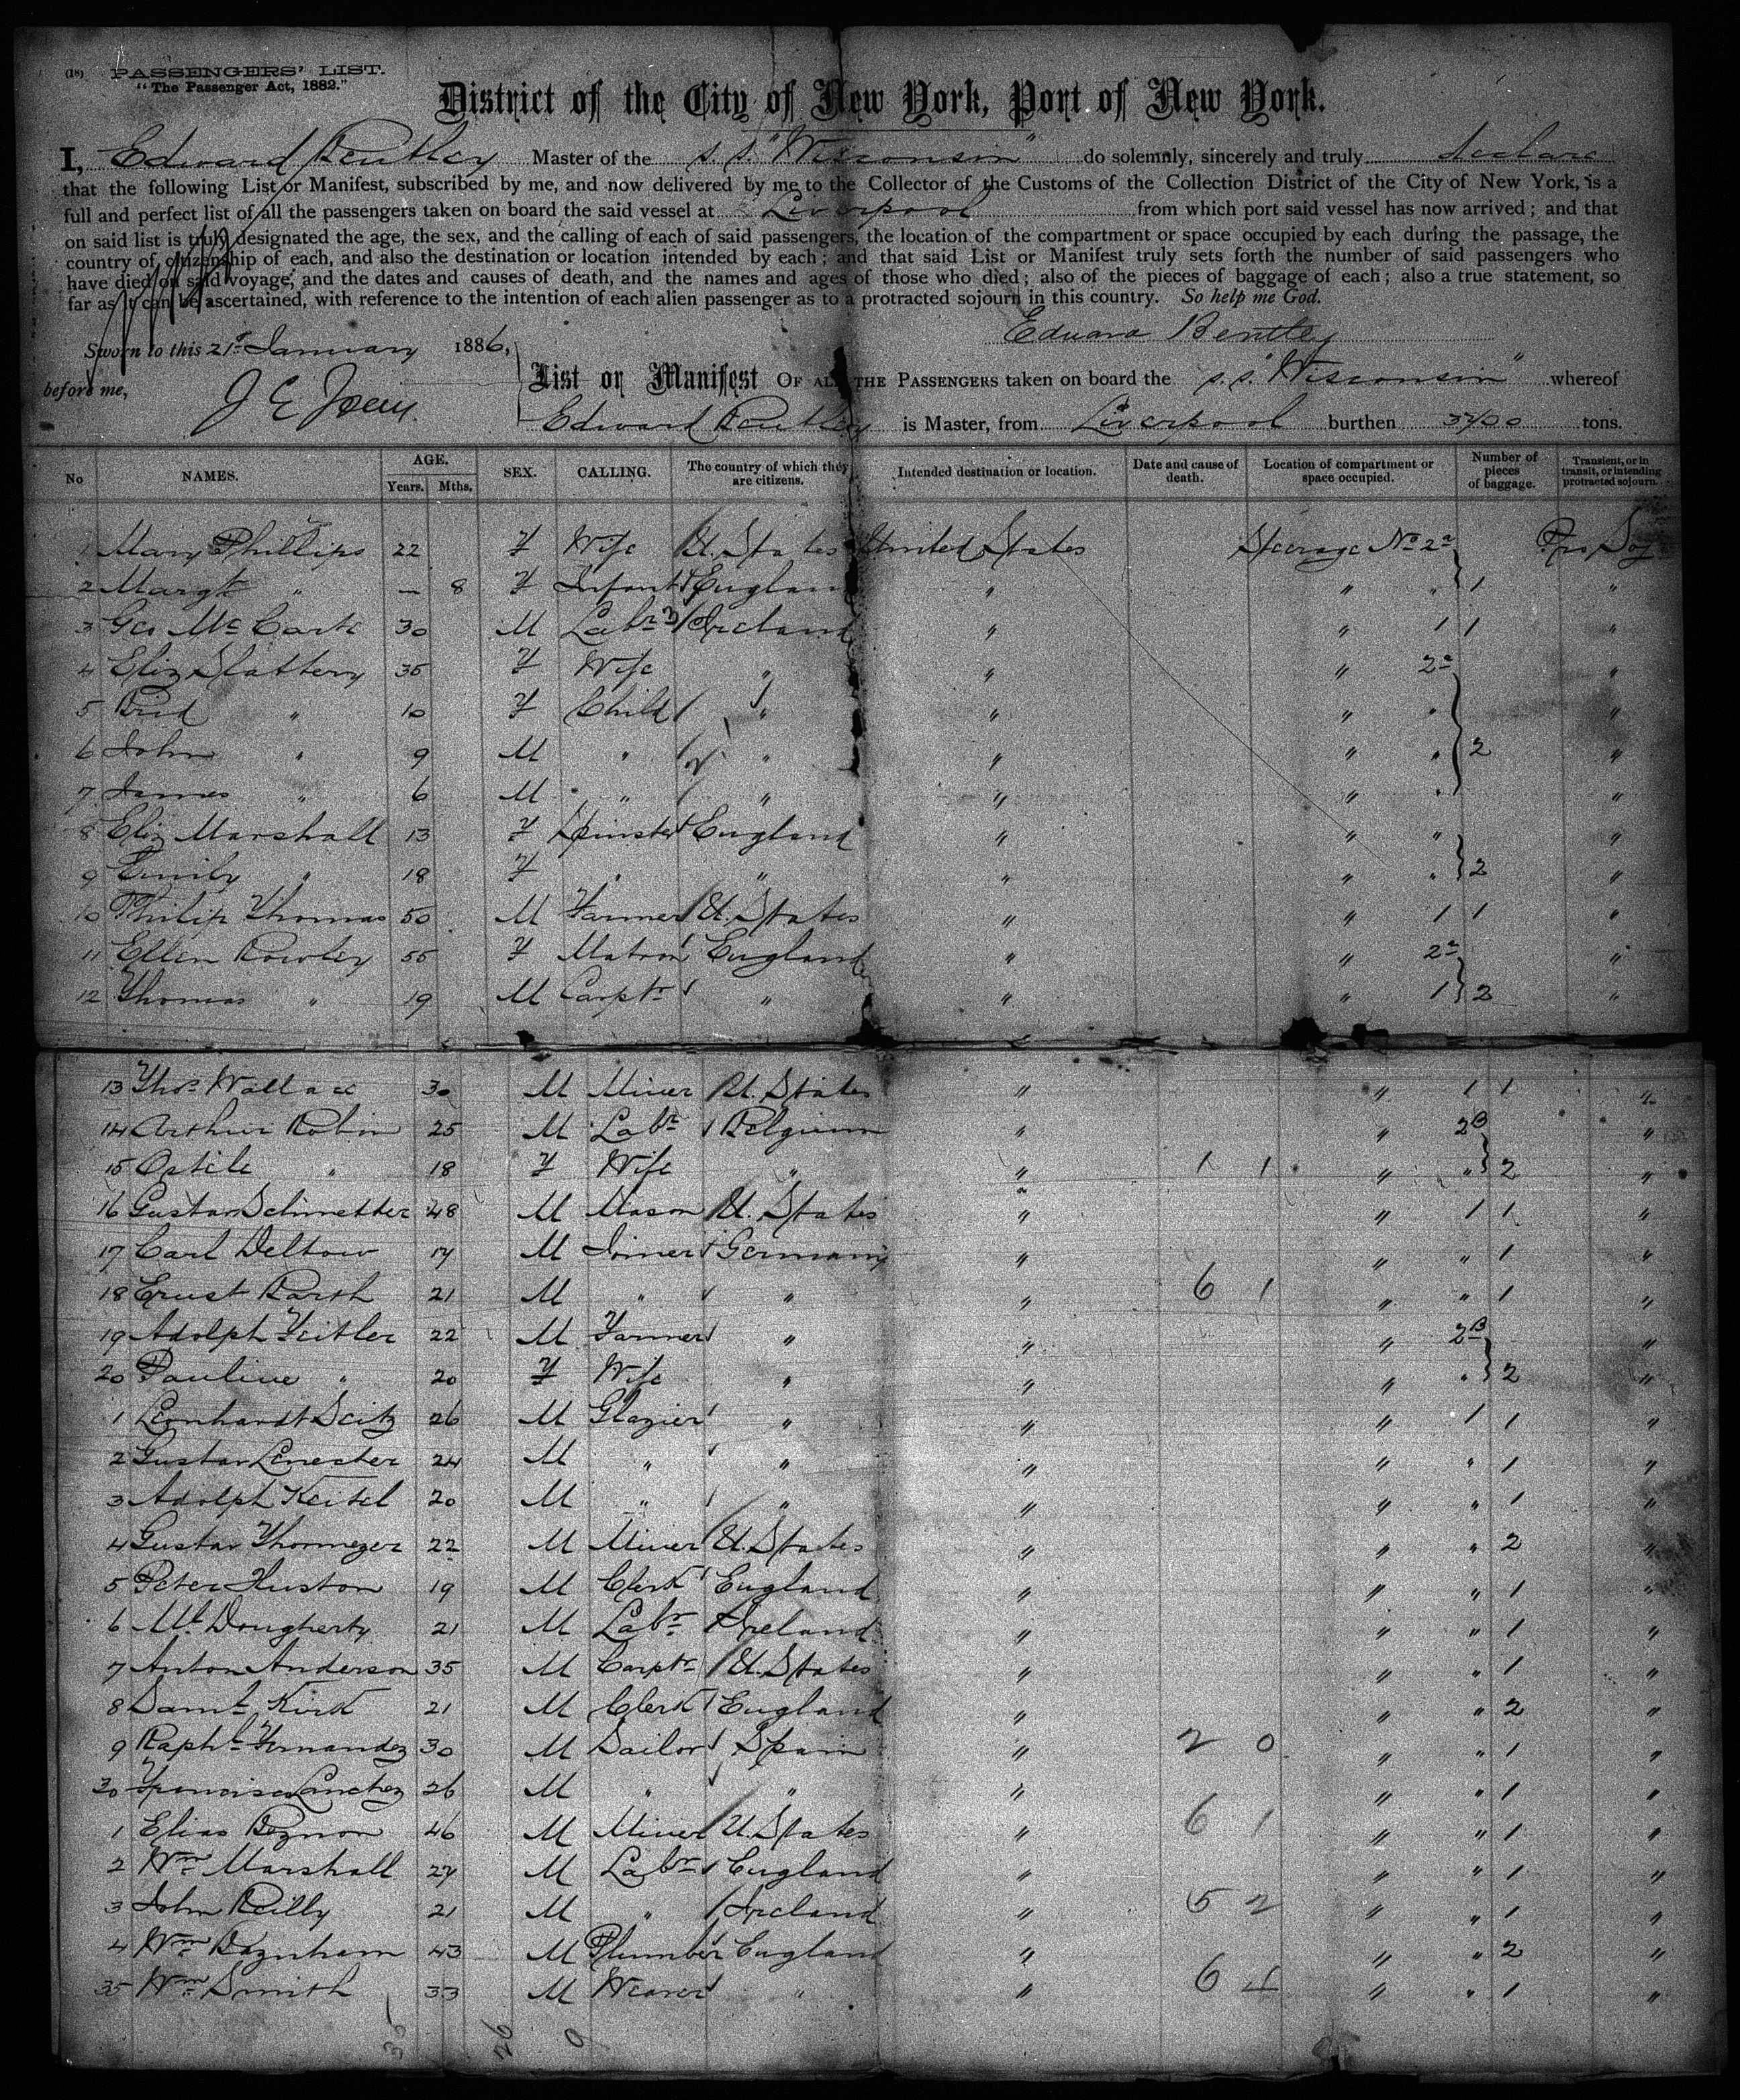 (18) PASSENGERS' LIST.
"The Passenger Act, 1882."
District of the City of New York, Port of New York.
I, Edward Bentley Master of the s.s. "Wisconsin" do solemnly, sincerely and truly declare
that the following List or Manifest, subscribed by me, and now delivered by me to the Collector of the Customs of the Collection District of the City of New York, is a
full and perfect list of all the passengers taken on board the said vessel at Liverpool from which port said vessel has now arrived; and that
on said list is truly designated the age, the sex, and the calling of each of said passengers, the location of the compartment or space occupied by each during the passage, the
country of citizenship of each, and also the destination or location intended by each; and that said List or Manifest truly sets forth the number of said passengers who
have died on said voyage, and the dates and causes of death, and the names and ages of those who died; also of the pieces of baggage of each; also a true statement, so
far as it can be ascertained, with reference to the intention of each alien passenger as to a protracted sojourn in this country. So help me God.
Edward Bentley
Sworn to this 21st January 1886,
before me,
List or Manifest OF ALL THE PASSENGERS taken on board the s.s. "Wisconsin" whereof
Edward Bentley is Master, from Liverpool burthen 3700 tons.
No NAMES. AGE. Years. Mths. SEX. CALLING. The country of which they are citizens. Intended destination or location. Date and cause of death. Location of compartment or space occupied. Number of pieces of baggage. Transient, or in transit, or intending protracted sojourn.
1 Mary Phillips 22 F Wife U. States United States Steerage No 2a Pro Soj
2 Margt " — 8 F Infant England " " " 1 "
3 Geo Mc Carte 30 M Labr Ireland " " 1 1 "
4 Eliz Slattery 35 F Wife " " " 2a "
5 Brid " 10 F Child " " " " "
6 John " 9 M " " " " " 2 "
7 James " 6 M " " " " " "
8 Eliz Marshall 13 F Spinster England " " " "
9 Emily " 18 F " " " " " 2 "
10 Philip Thomas 50 M Farmer U. States " " 1 1 "
11 Ellen Rowley 55 F Matron England " " 2a "
12 Thomas " 19 M Carptr " " " 1 2 "
13 Thos Wallace 30 M Miner U. States " " 1 1 "
14 Arthur Robin 25 M Labr Belgium " " 2B "
15 " 18 F Wife " " 1 1 " " 2 "
16 Gustav Schmetter 48 M Mason U. States " " 1 1 "
17 Carl Deltow 17 M Joiner Germany " " " 1 "
18 Ernst Barth 21 M " " " 6 1 " " 1 "
19 Adolph Feitler 22 M Farmer " " " 2B "
20 Pauline " 20 F Wife " " " " 2 "
1 Leonhardt Seitz 26 M Glazier " " " 1 1 "
2 Gustav 24 M " " " " " 1 "
3 Adolph Keitel 20 M " " " " " 1 "
4 Gustav Thormezer 22 M Miner U. States " " " 2 "
5 Peter Huston 19 M Clerk England " " " 1 "
6 Ml Dougherty 21 M Labr Ireland " " " 1 "
7 Anton Anderson 35 M Carptr U. States " " " 1 "
8 Saml Kirk 21 M Clerk England " " " 2 "
9 Raphl Fernandez 30 M Sailor Spain " 2 0 " " 1 "
30 Francisco Sanchez 26 M " " " " " 1 "
1 Elias Beynon 46 M Miner U. States " 6 1 " " 1 "
2 Wm Marshall 27 M Labr England " " " 1 "
3 John Reilly 21 M " Ireland " 5 2 " " 1 "
4 Wm Baynham 43 M Plumber England " " " 2 "
35 Wm Smith 33 M Weaver " " 6 4 " " 1 "
35 26 0